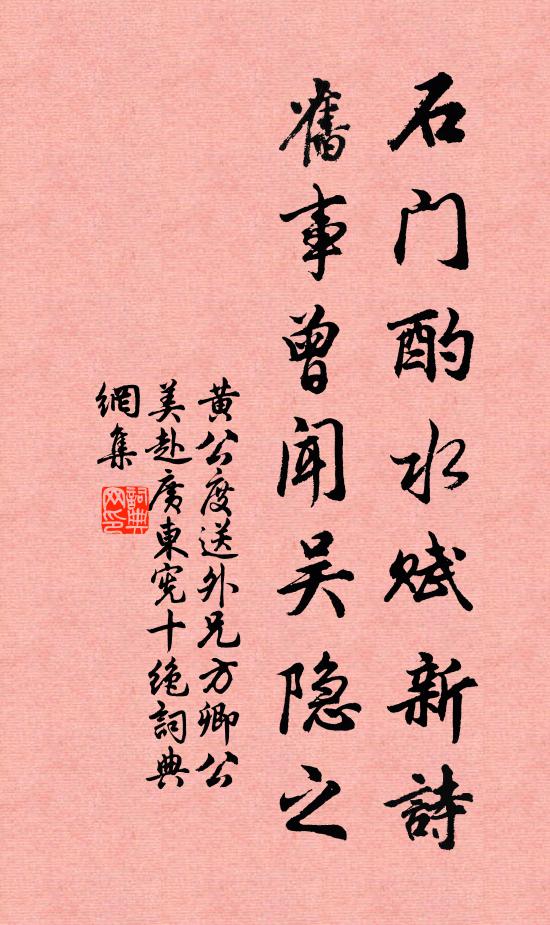 石门酌水赋新詩
舊事曾闻吴隐之
黄公度送外兄方卿公
美赴廣東宪十绝詞典
網集
詞典
网印